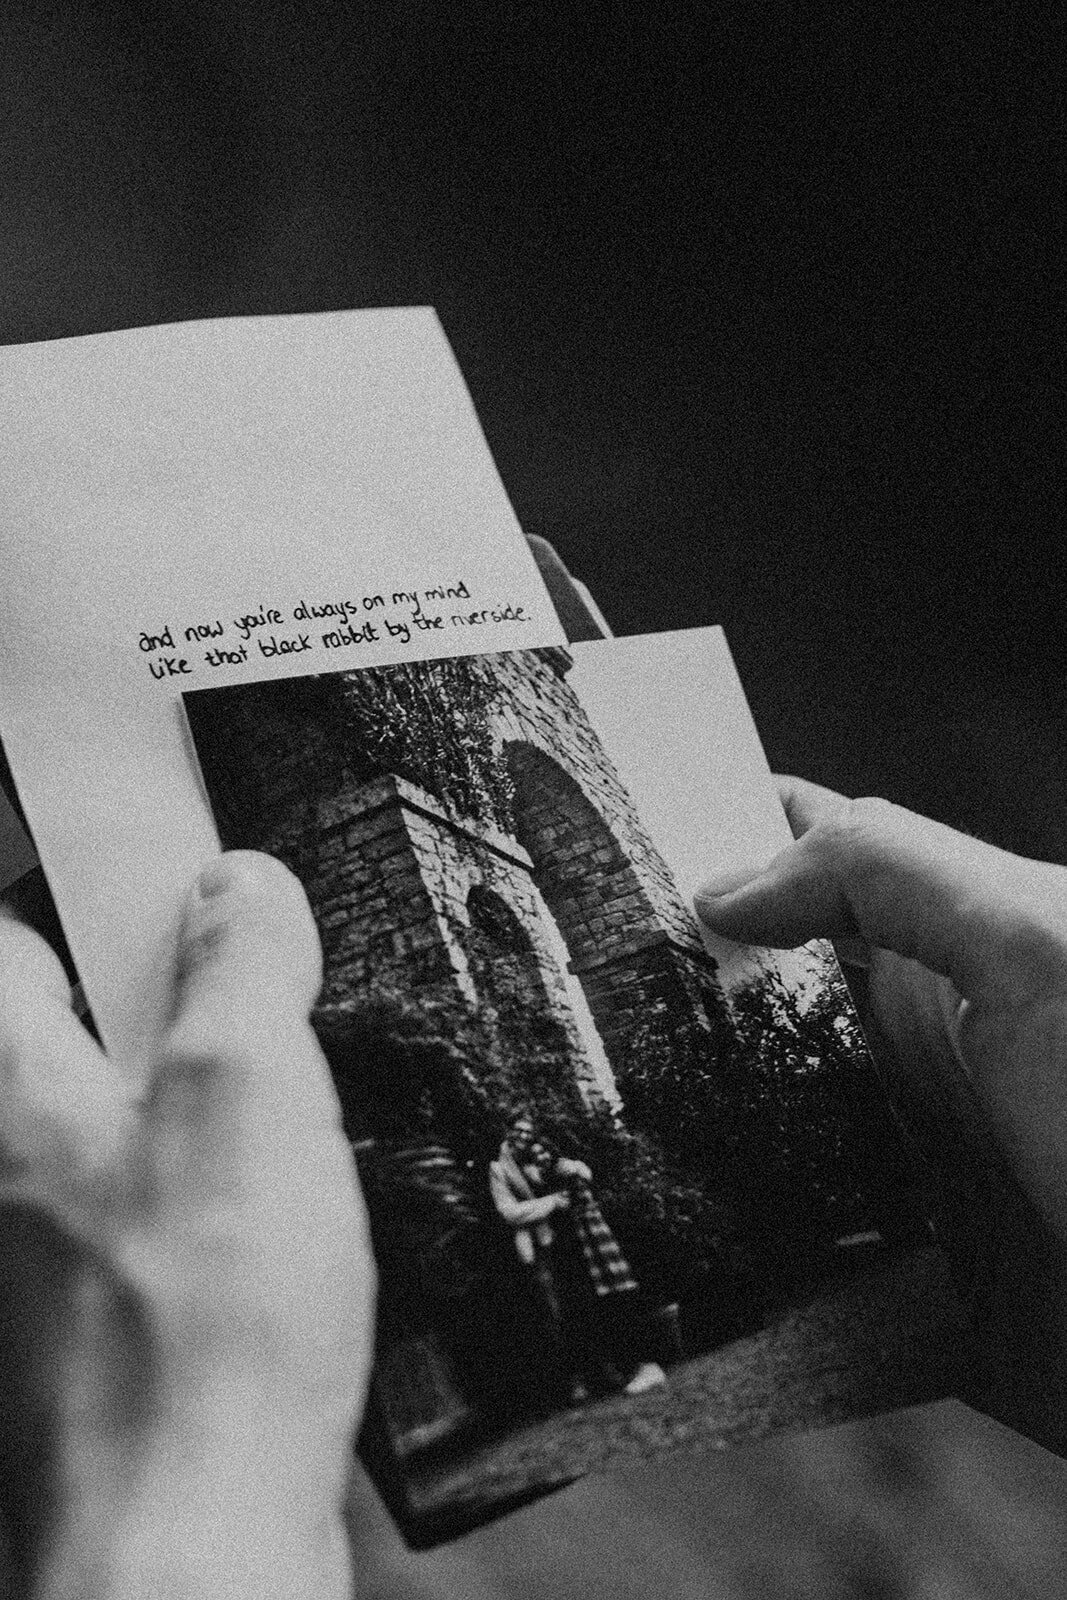 and now you're always on my mind
like that black rabbit by the riverside.